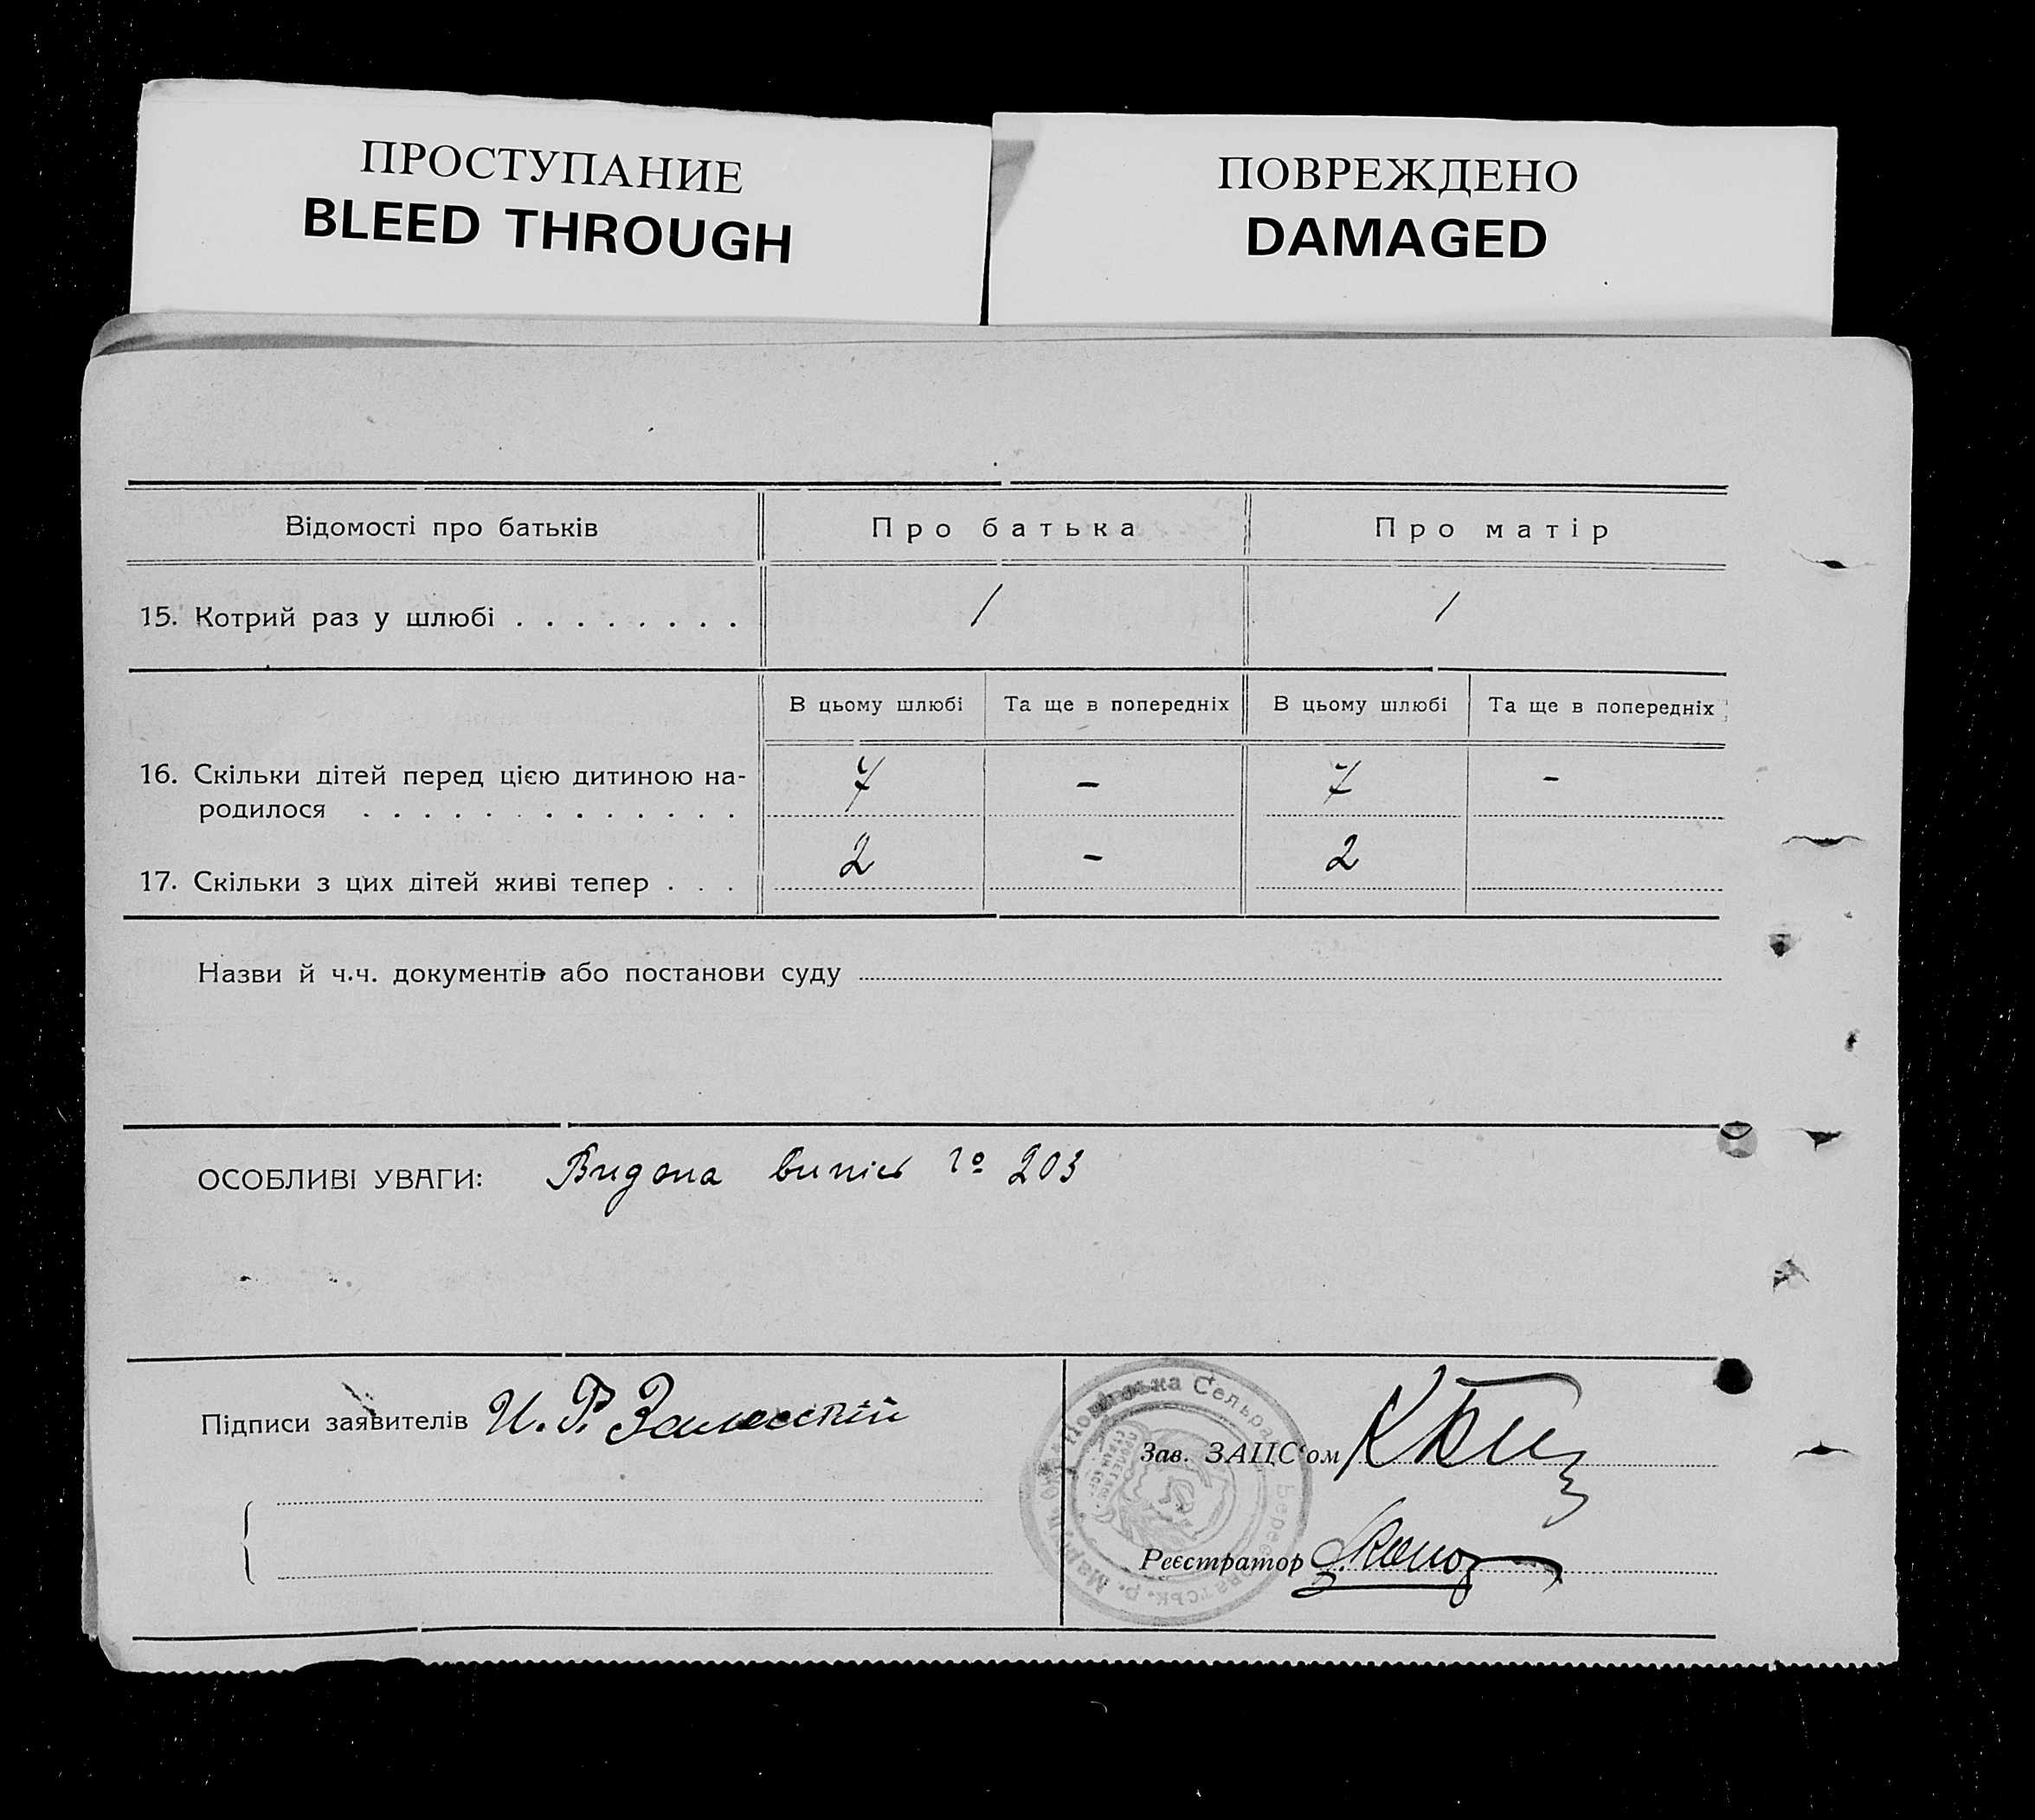 ПРОСТУПАНИЕ
BLEED THROUGH
ПОВРЕЖДЕНО
DAMAGED
Відомості про батьків Про батька Про матір
15. Котрий раз у шлюбі . . . . . . . . / /
В цьому шлюбі Та ще в попередніх В цьому шлюбі Та ще в попередніх
16. Скільки дітей перед цією дитиною на- 7 - 7 -
родилося . . . . . . . . . . . . .
17. Скільки з цих дітей живі тепер . . . 2 - 2
Назви й ч.ч. документів або постанови суду
ОСОБЛИВІ УВАГИ: Видана випис 203
Підписи заявителів И. Р. Залесский
Зав. ЗАЦС'ом
Реєстратор
Сельрада